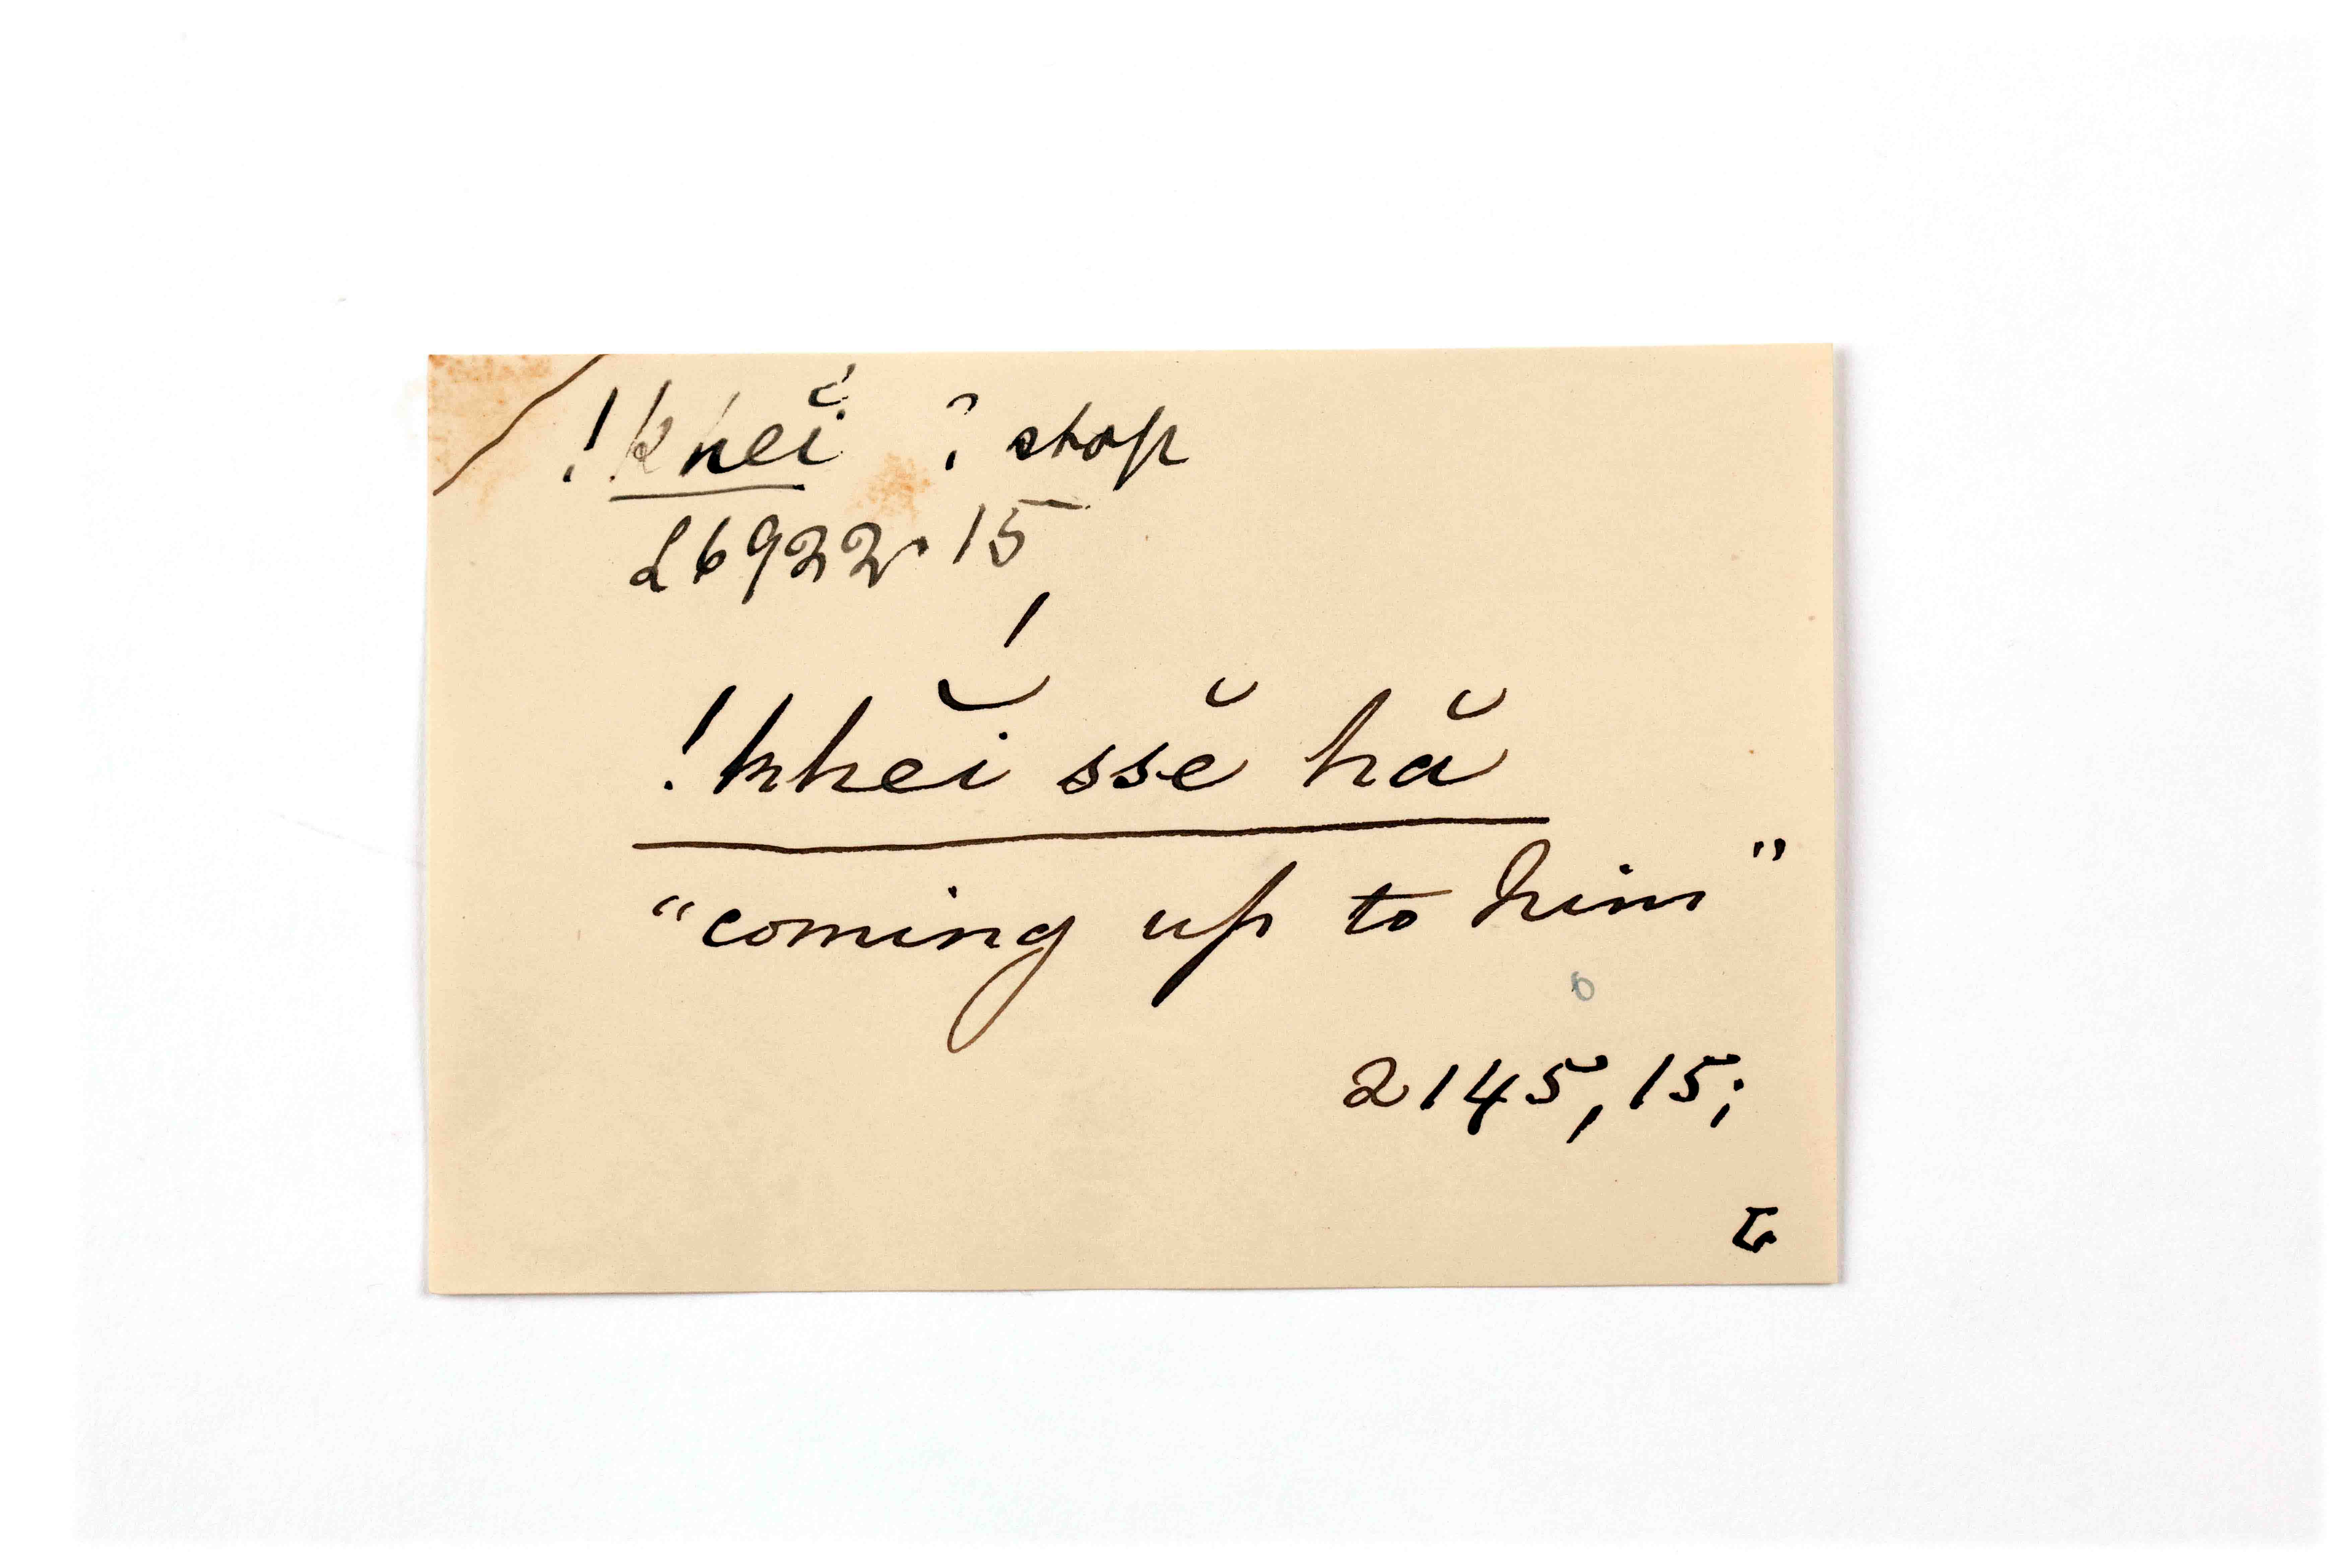 !khĕí ? stop
L6922.15
!khĕ́i ssĕ hă
"coming up to him"
2145, 15;